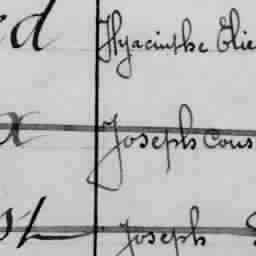 ed Hyacinthe Elie
x Joseph Cous
st Joseph S